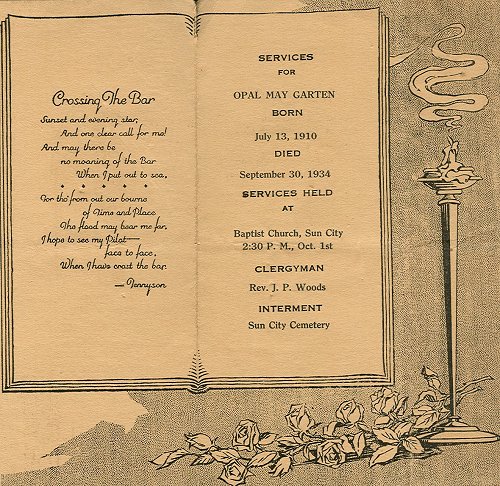 Crossing The Bar
Sunset and evening star,
And one clear call for me!
And may there be
no moaning of the Bar
When I put out to sea.
For tho' from out our bourne
of Time and Place
The flood may bear me far,
I hope to see my Pilot—
face to face,
When I have crost the bar.
— Tennyson
SERVICES
FOR
OPAL MAY GARTEN
BORN
July 13, 1910
DIED
September 30, 1934
SERVICES HELD
AT
Baptist Church, Sun City
2:30 P. M., Oct. 1st
CLERGYMAN
Rev. J. P. Woods
INTERMENT
Sun City Cemetery